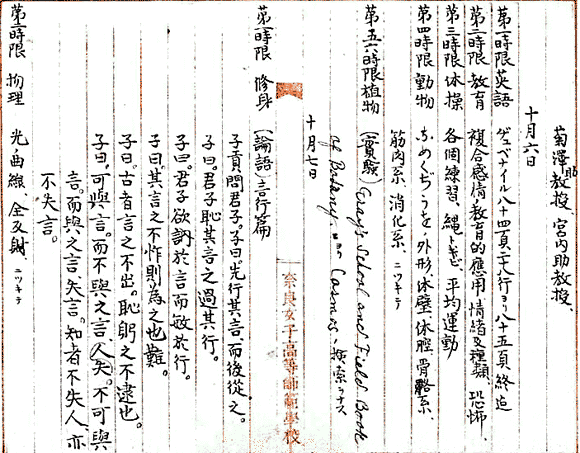 菊澤助教授、宮内助教授、
十月六日
第一時限 英語 ヂュベナイル八十四頁二十八行ヨリ八十五頁終迄
第二時限 教育 複合感情、教育的應用、情緒及種類、恐怖、
第三時限 体操 各個練習、縄トビ、平均運動
第四時限 動物 外形、体壁、体腔、骨骼系、
筋肉系、消化系、ニツキテ
第五六時限 植物 (實験) Gray's School and Field Book
of Botany. ニヨリ 検索ヲナス
十月七日
第一時限 修身 (論語) 言行篇
子貢問君子。子曰。先行其言、而後從之。
子曰。君子恥其言之過其行。
子曰。君子欲訥於言而敏於行。
子曰。其言之不怍則為之也難。
子曰。古者言之不出。恥躬之不逮也。
子曰。可與言。而不與之言、人失。不可與
言。而與之言、失言。知者不失人、亦
不失言。
第二時限 物理 光曲線、全反射、ニツキテ
奈良女子高等師範學校